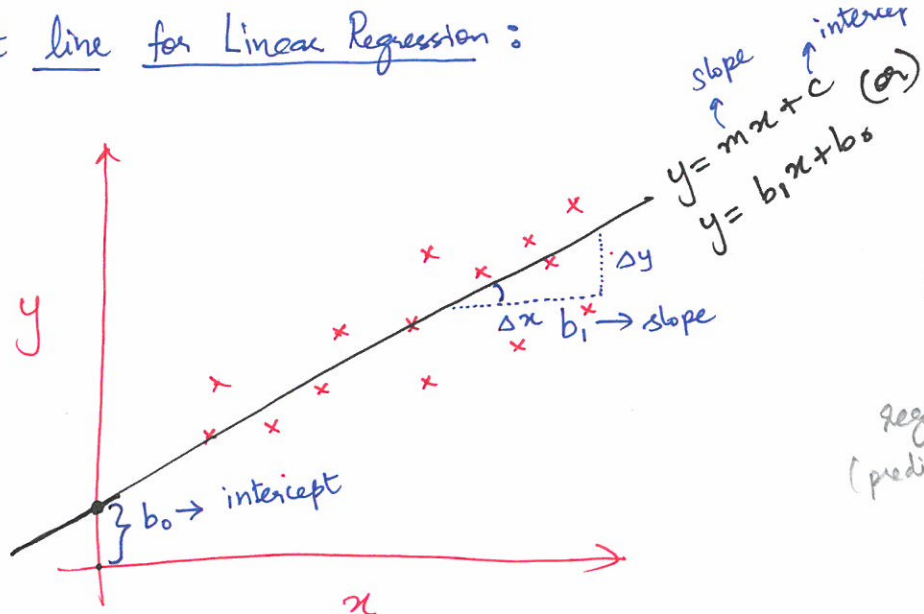 line for Linear Regression:
slope
intercep
y = mx + c (or)
y = b₁x + b₀
y
Δy
Δx
b₁ → slope
b₀ → intercept
x